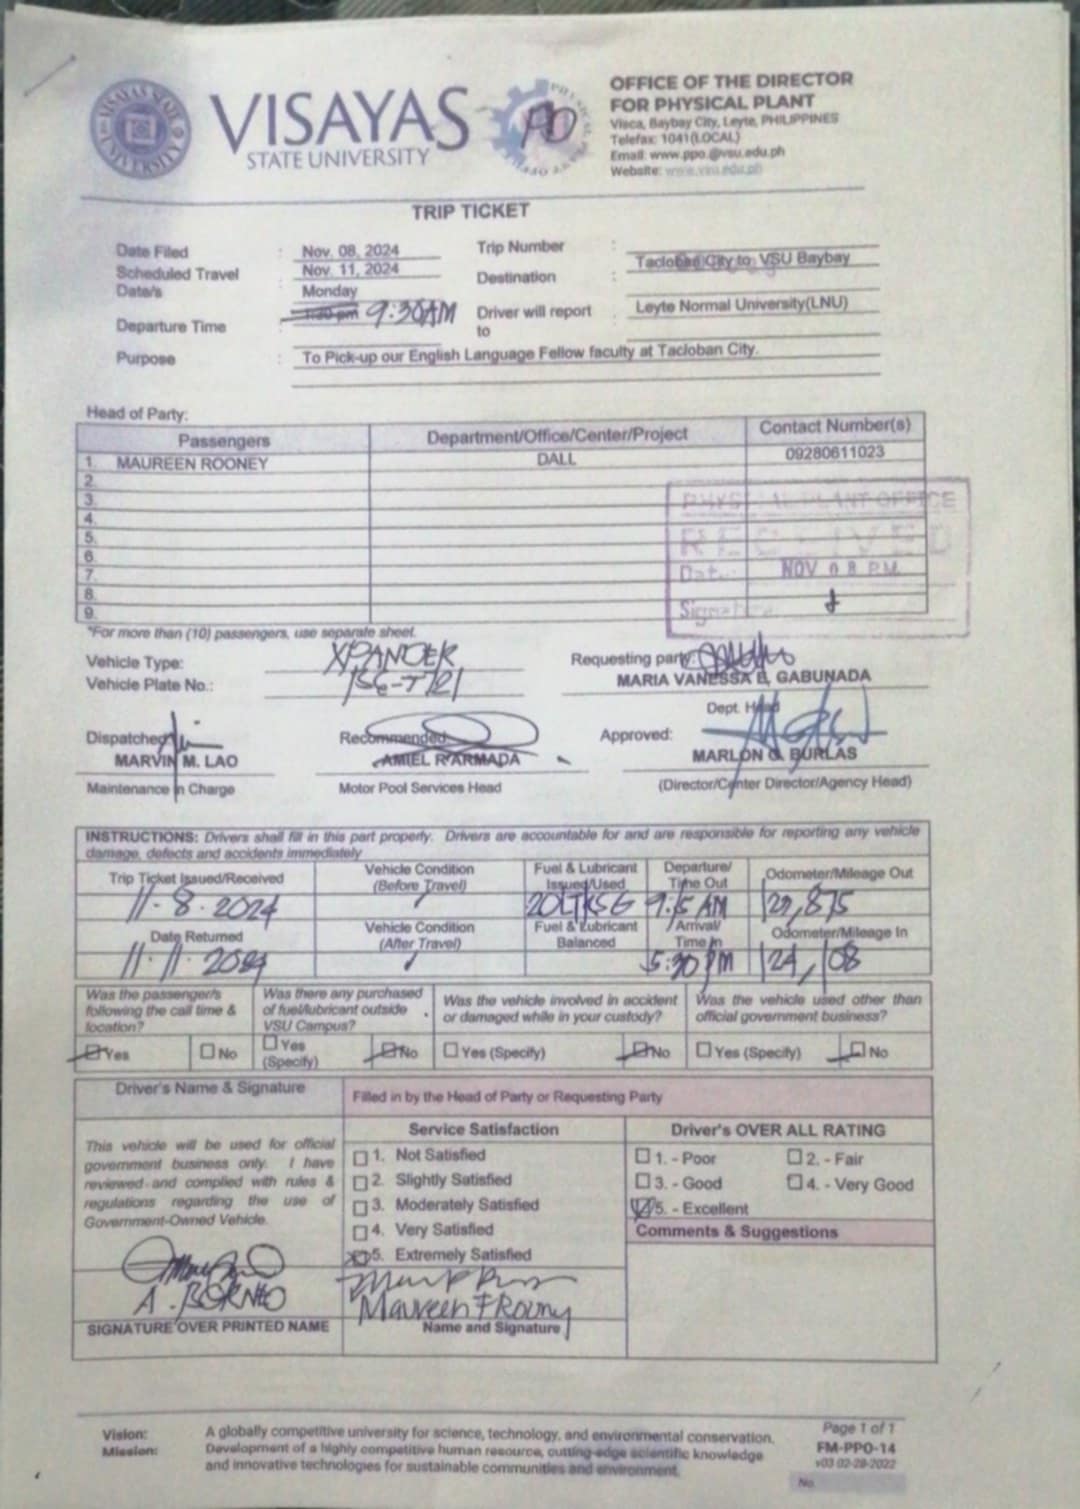 VISAYAS STATE UNIVERSITY
VISAYAS
STATE UNIVERSITY
OFFICE OF THE DIRECTOR
FOR PHYSICAL PLANT
Visca, Baybay City, Leyte, PHILIPPINES
Telefax: 1041(LOCAL)
Email: www.ppo.@vsu.edu.ph
Website: www.vsu.edu.ph
TRIP TICKET
Date Filed : Nov. 08, 2024 Trip Number :
Scheduled Travel Date/s : Nov. 11, 2024 Monday Destination : Tacloban City to VSU Baybay
Departure Time : 1:30 pm 9:30AM Driver will report to : Leyte Normal University(LNU)
Purpose : To Pick-up our English Language Fellow faculty at Tacloban City.
Head of Party:
Passengers Department/Office/Center/Project Contact Number(s)
1. MAUREEN ROONEY DALL 09280611023
2.
3.
4.
5.
6.
7.
8.
9.
PHYSICAL PLANT OFFICE
RECEIVED
Date: NOV 08 P.M.
Signature:
*For more than (10) passengers, use separate sheet.
Vehicle Type: XPANDER Requesting party:
Vehicle Plate No.: MARIA VANESSA E. GABUNADA
Dept. Head
Dispatched Recommended Approved:
MARVIN M. LAO AMIEL R ARMADA MARLON G. BURLAS
Maintenance in Charge Motor Pool Services Head (Director/Center Director/Agency Head)
INSTRUCTIONS: Drivers shall fill in this part properly. Drivers are accountable for and are responsible for reporting any vehicle
damage, defects and accidents immediately
Trip Ticket Issued/Received Vehicle Condition (Before Travel) Fuel & Lubricant Issued/Used Departure/ Time Out Odometer/Mileage Out
11-8-2024 9:15 AM
Date Returned Vehicle Condition (After Travel) Fuel & Lubricant Balanced /Arrival/ Time In Odometer/Mileage In
11-11-2024 5:30 PM
Was the passenger/s following the call time & location? Was there any purchased of fuel/lubricant outside VSU Campus? Was the vehicle involved in accident or damaged while in your custody? Was the vehicle used other than official government business?
Yes No Yes (Specify) No Yes (Specify) No Yes (Specify) No
Driver's Name & Signature Filled in by the Head of Party or Requesting Party
Service Satisfaction Driver's OVER ALL RATING
This vehicle will be used for official
government business only. I have
reviewed and complied with rules &
regulations regarding the use of
Government-Owned Vehicle.
1. Not Satisfied
2. Slightly Satisfied
3. Moderately Satisfied
4. Very Satisfied
5. Extremely Satisfied
1. - Poor 2. - Fair
3. - Good 4. - Very Good
5. - Excellent
Comments & Suggestions
A. BORNEO
Maureen F Rooney
SIGNATURE OVER PRINTED NAME Name and Signature
Vision: A globally competitive university for science, technology, and environmental conservation.
Mission: Development of a highly competitive human resource, cutting-edge scientific knowledge
and innovative technologies for sustainable communities and environment.
Page 1 of 1
FM-PPO-14
v03 02-28-2022
No.